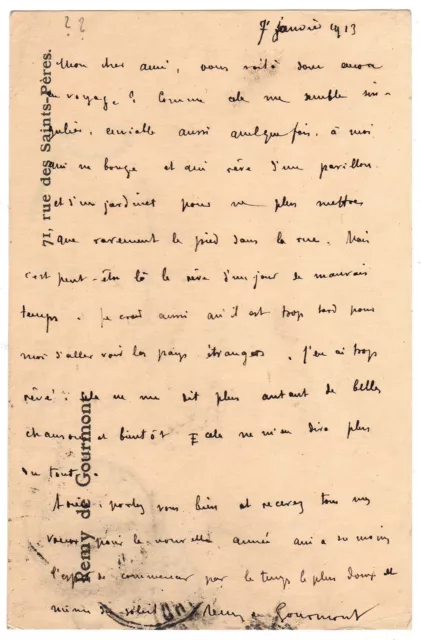 7 janvier 1913
Mon cher ami, vous voilà donc encore
en voyage? Comme cela me semble sin-
gulier, enviable aussi quelquefois, à moi
qui ne bouge et qui rêve d'un pavillon
et d'un jardinet pour ne plus mettre
que rarement le pied dans la rue. Mais
c'est peut-être là le rêve d'un jour de mauvais
temps. Je crois aussi qu'il est trop tard pour
moi d'aller voir les pays étrangers. J'en ai trop
rêvé: cela ne me dit plus autant de belles
chansons et bientôt cela ne m'en dira plus
du tout.
portez vous bien et recevez tous mes
voeux pour la nouvelle année qui a au moins
l'esprit de commencer par le temps le plus doux et
même du soleil Remy de Gourmont
71, rue des Saints-Pères.
Remy de Gourmont